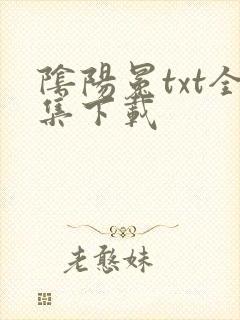 陰陽冕txt全
集下載
老憨妹